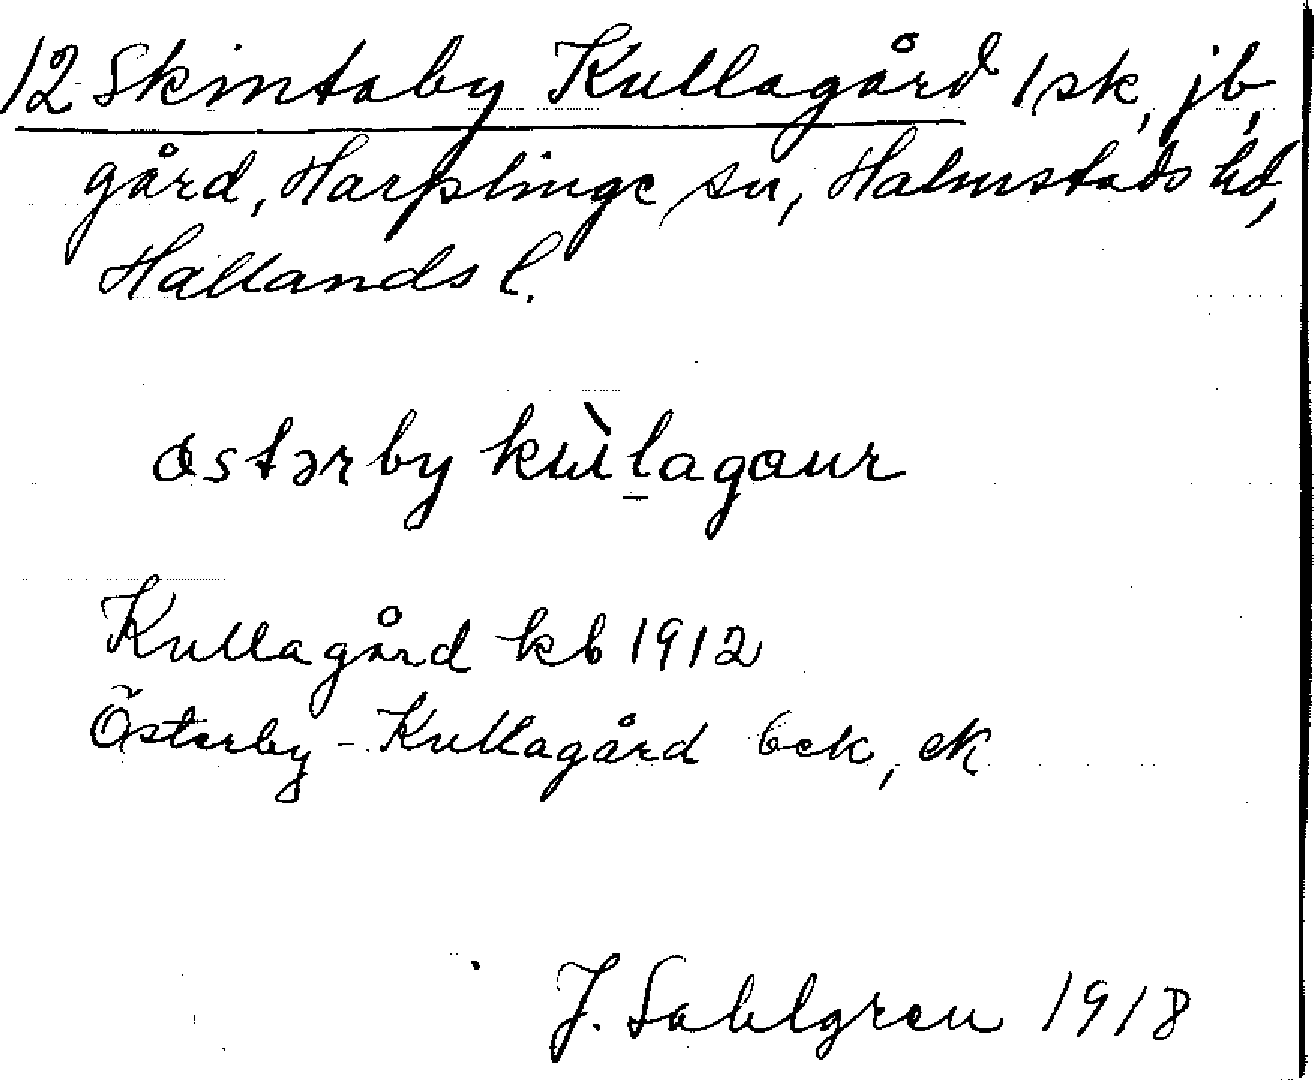 12 Skintaby Kullagård 1 sk, jb,
gård, Harplinge sn, Halmstads hd,
Hallands l.
østərby kùlagaur
Kullagård kb 1912
Österby - Kullagård eck, ek
J. Sahlgren 1918